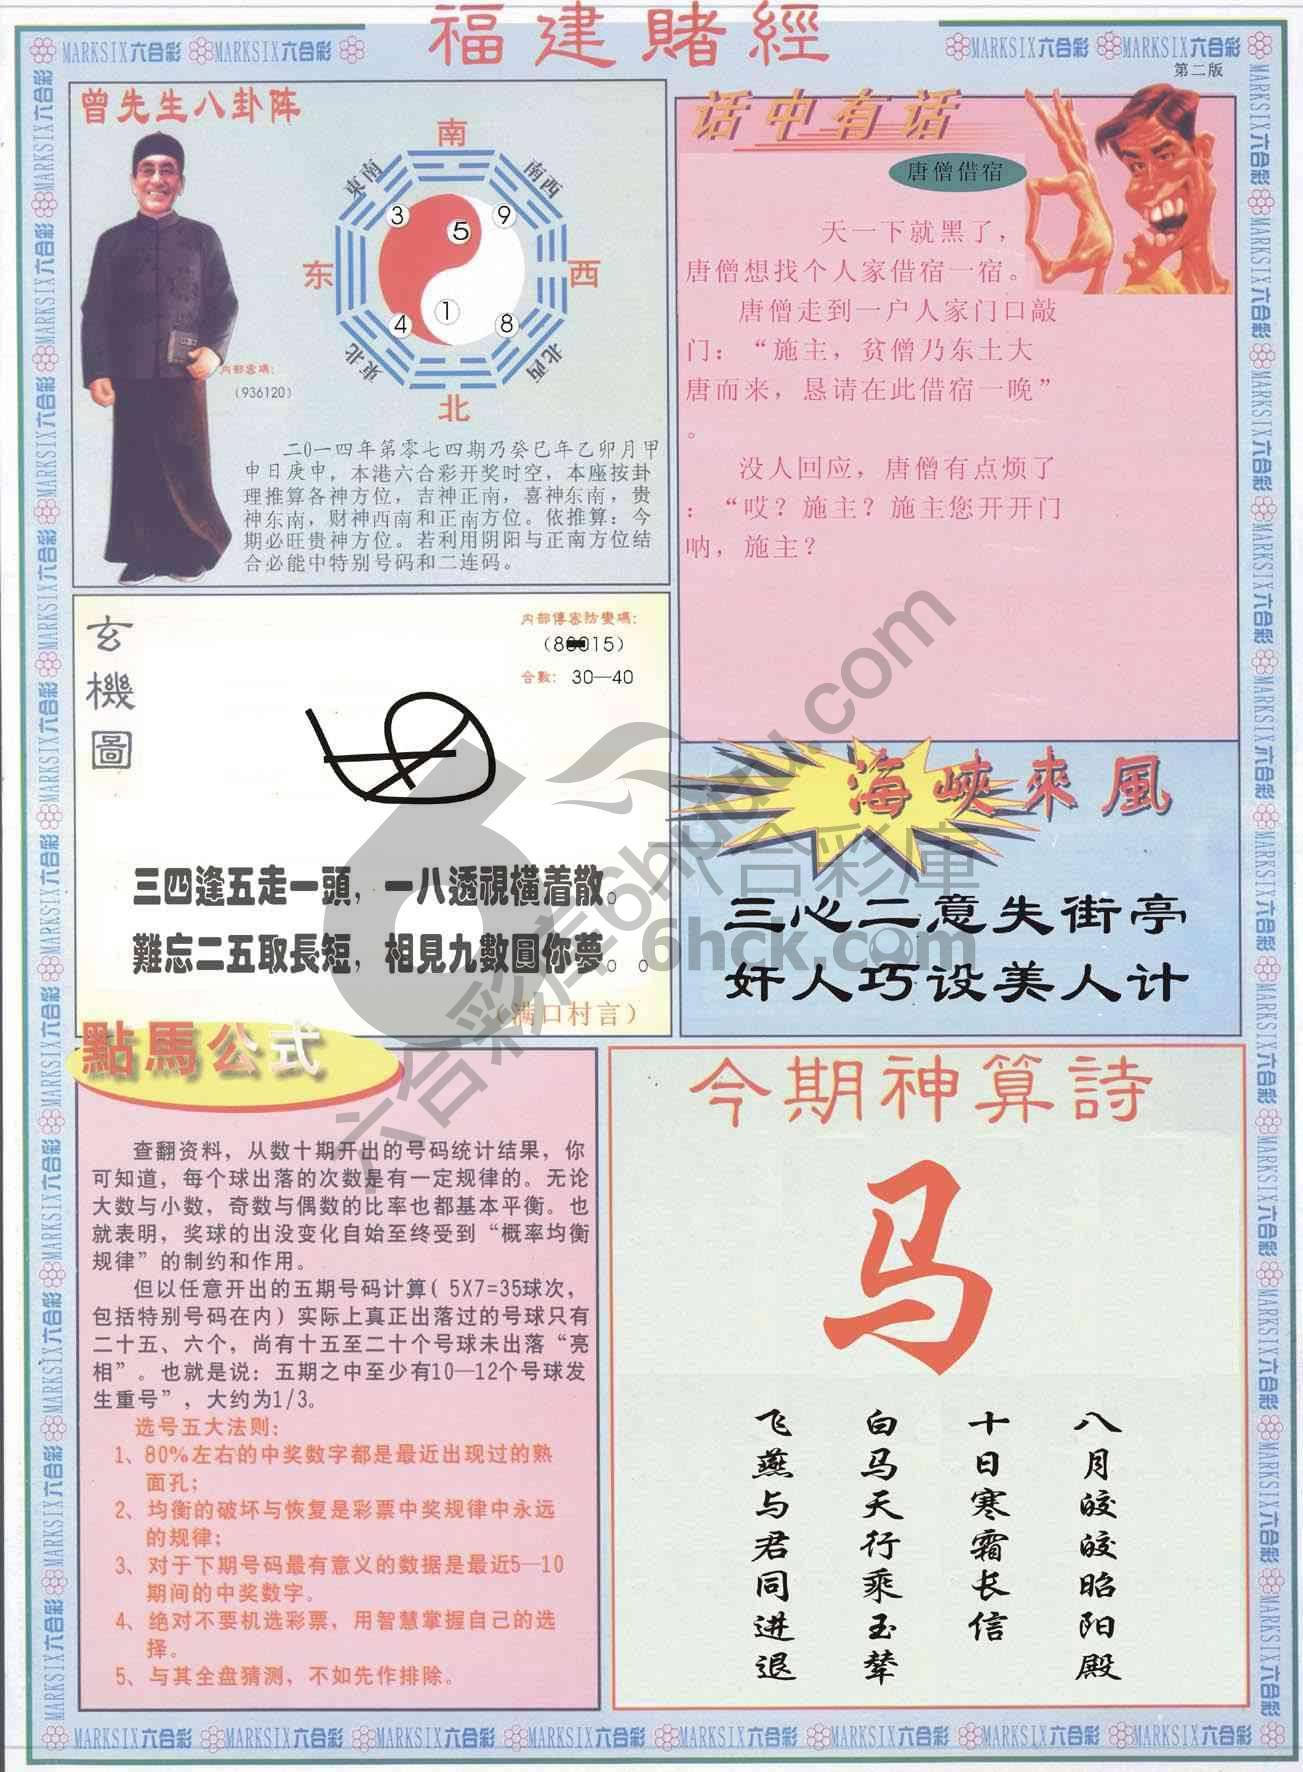 福建賭經
MARKSIX六合彩 MARKSIX六合彩
MARKSIX六合彩 MARKSIX六合彩
第二版
曾先生八卦阵
南
東南
南西
3
9
5
东
西
1
4
8
東北
北西
北
内部密碼：
（936120）
二0一四年第零七四期乃癸巳年乙卯月甲
申日庚申，本港六合彩开奖时空，本座按卦
理推算各神方位，吉神正南，喜神东南，贵
神东南，财神西南和正南方位。依推算：今
期必旺贵神方位。若利用阴阳与正南方位结
合必能中特别号码和二连码。
话中有话
唐僧借宿
天一下就黑了，
唐僧想找个人家借宿一宿。
唐僧走到一户人家门口敲
门：“施主，贫僧乃东土大
唐而来，恳请在此借宿一晚”
。
没人回应，唐僧有点烦了
：“哎？施主？施主您开开门
呐，施主？
玄機圖
内部傳密防變碼：
合數：30—40
三四逢五走一頭，一八透視橫着散。
難忘二五取長短，相見九數圓你夢。。
（满口村言）
海峽來風
三心二意失街亭
奸人巧设美人计
點馬公式
查翻资料，从数十期开出的号码统计结果，你
可知道，每个球出落的次数是有一定规律的。无论
大数与小数，奇数与偶数的比率也都基本平衡。也
就表明，奖球的出没变化自始至终受到“概率均衡
规律”的制约和作用。
但以任意开出的五期号码计算( 5X7=35球次，
包括特别号码在内）实际上真正出落过的号球只有
二十五、六个，尚有十五至二十个号球未出落“亮
相”。也就是说：五期之中至少有10—12个号球发
生重号”，大约为1/3。
选号五大法则：
1、80%左右的中奖数字都是最近出现过的熟
面孔；
2、均衡的破坏与恢复是彩票中奖规律中永远
的规律；
3、对于下期号码最有意义的数据是最近5—10
期间的中奖数字。
4、绝对不要机选彩票，用智慧掌握自己的选
择。
5、与其全盘猜测，不如先作排除。
今期神算詩
马
八月皎皎昭阳殿
十日寒霜长信
白马天行乘玉辇
飞燕与君同进退
六合彩库6hhudu.com
六合彩庫
6hck.com
MARKSIX六合彩 MARKSIX六合彩 MARKSIX六合彩 MARKSIX六合彩 MARKSIX六合彩 MARKSIX六合彩 MARKSIX六合彩 MARKSIX六合彩